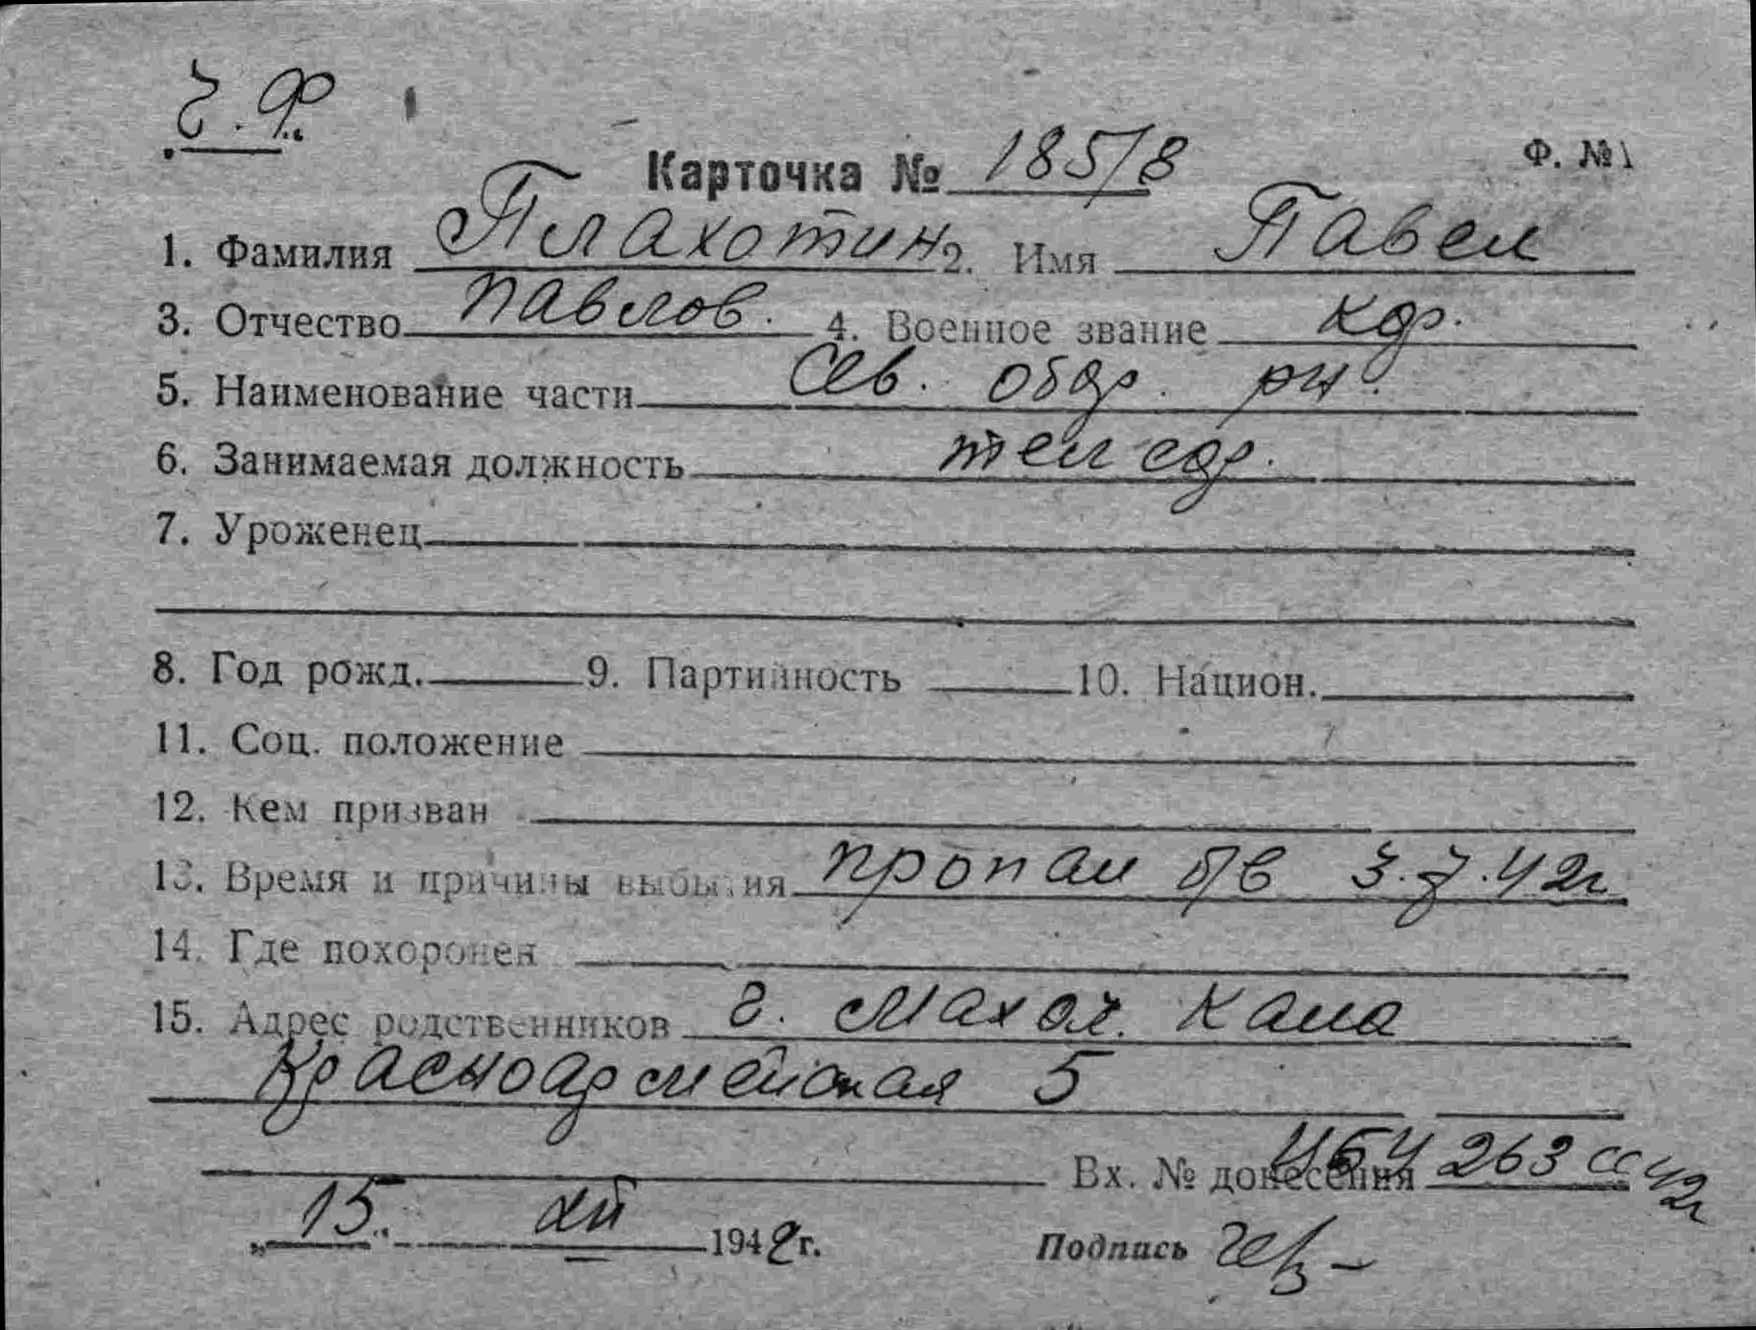 Ч.Ф.
Карточка № 185/8 Ф. №1
1. Фамилия Плахотин 2. Имя Павел
3. Отчество Павлов. 4. Военное звание кдр.
5. Наименование части Сев. обор. рн.
6. Занимаемая должность тел
7. Уроженец
8. Год рожд. 9. Партийность 10. Национ.
11. Соц. положение
12. Кем призван
13. Время и причины выбытия пропал б/в 3.7.42г
14. Где похоронен
15. Адрес родственников г. Махач. Кала
Красноармейская 5
Вх. № донесения 263 сс 42г
„15“ 1942г. Подпись